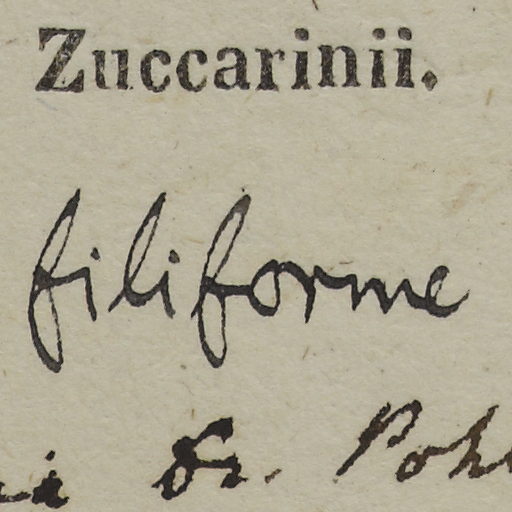 Zuccarinii.
filiforme
Dr. Pohl